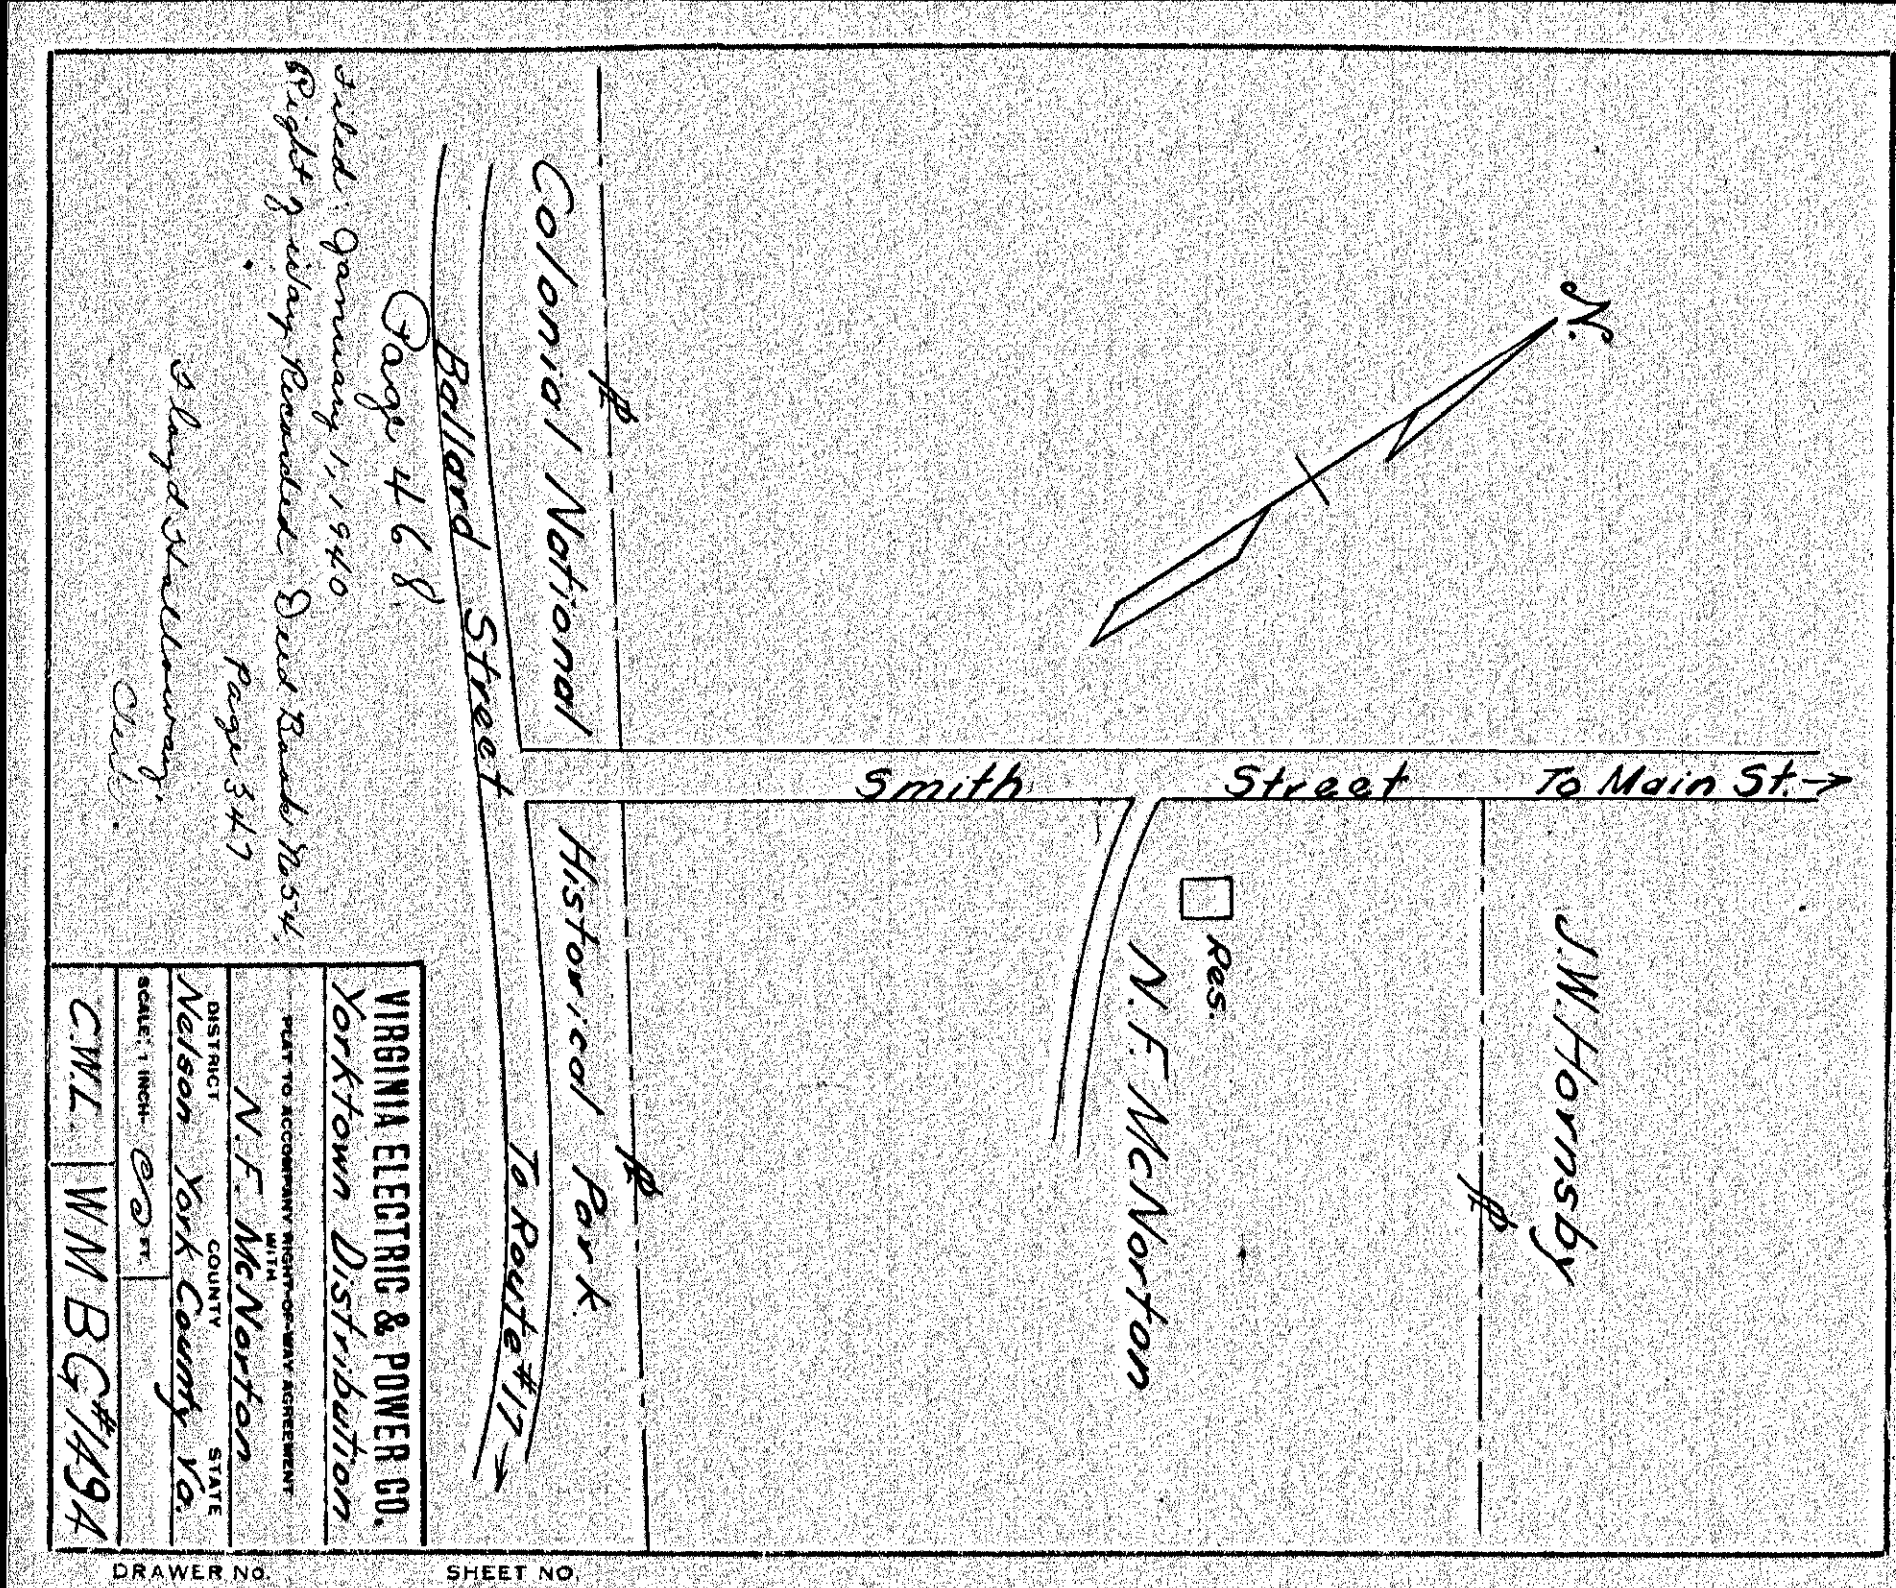 N.
J.W. Hornsby
Smith Street To Main St.→
Res.
N. F. McNorton
Colonial National
Historical Park
Ballard Street
To Route #17→
Page 468
Filed January 1, 1940
Right of Way Recorded Deed Book No 54,
Page 347
Floyd Holloway,
Clerk.
VIRGINIA ELECTRIC & POWER CO.
Yorktown Distribution
PLAT TO ACCOMPANY RIGHT-OF-WAY AGREEMENT
WITH
N. F. McNorton
DISTRICT COUNTY STATE
Nelson York County Va.
SCALE: 1 INCH FT.
C.W.L. WMBG #149A
DRAWER No.
SHEET NO.